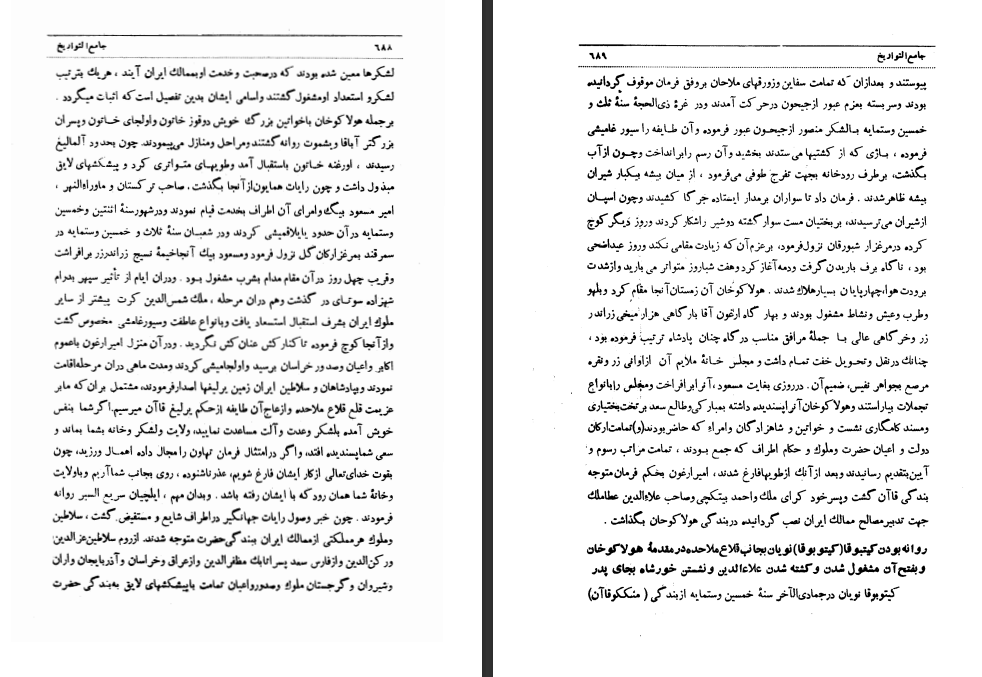 جامع‌التواریخ ٦٨٨
لشکرها معین شده بودند که درصحبت وخدمت اوبممالك ایران آیند ، هریك بترتیب
لشکرو استعداد اومشغول گشتند واسامی ایشان بدین تفصیل است که اثبات میگردد .
برجمله هولاکوخان باخواتین بزرگ خویش دوقوز خاتون واولجای خاتون وپسران
بزرگتر آباقا ویشموت روانه گشتندومراحل ومنازل می‌پیمودند. چون بحدود آلمالیغ
رسیدند ، اورغنه خاتون باستقبال آمد وطویهای متواتری کرد و پیشکشهای لایق
مبذول داشت و چون رایات همایون‌ازآنجا بگذشت. صاحب ترکستان و ماوراءالنهر ،
امیر مسعود بیگ‌وامرای آن اطراف بخدمت قیام نمودند ودرشهورسنهٔ اثنتین وخمسین
وستمایه درآن حدود یایلاقمیشی کردند ودر شعبان سنهٔ ثلاث و خمسین وستمایه در
سمرقند بمرغزارکان گل نزول فرمود ومسعود بیك آنجاخیمهٔ نسیج زراندرزر برافراشت
وقریب چهل روز درآن مقام مدام بشرب مشغول بود . ودران ایام از تأثیر سپهر بدرام
شهزاده سوتای در گذشت وهم دران مرحله ، ملك شمس‌الدین کرت پیشتر از سایر
ملوك ایران بشرف استقبال استسعاد یافت وبانواع عاطفت وسیورغامشی مخصوص گشت
وازآنجا کوچ فرموده تاکنار کش عنان کش نگردید . ودرآن منزل امیرارغون باعموم
اکابر واعیان وصدور خراسان برسید واولجامیشی کردند ومدت ماهی دران مرحله‌اقامت
نمودند وبپادشاهان و سلاطین ایران زمین یرلیغها اصدارفرمودند، مشتمل بران که مابر
عزیمت قلع قلاع ملاحده وازعاج‌آن طایفه ازحکم یرلیغ قاآن میرسیم.اگرشما بنفس
خویش آمده بلشکر وعدت وآلت مساعدت نمایید، ولایت ولشکر وخانه بشما بماند و
سعی شماپسندیده افتد، واگر درامتثال فرمان تهاون رامجال داده اهمال ورزید، چون
بقوت خدای‌تعالی ازکار ایشان فارغ شویم، عذرناشنوده ، روی بجانب شماآریم وباولایت
وخانهٔ شما همان رود که با ایشان رفته باشد . وبدان مهم ، ایلچیان سریع السیر روانه
فرمودند . چون خبر وصول رایات جهانگیر دراطراف شایع و مستفیض گشت ، سلاطین
وملوك هرمملکتی ازممالك ایران ببندگی‌حضرت متوجه شدند. ازروم سلاطین‌عزالدین
ورکن‌الدین وازفارس سعد پسراتابك مظفرالدین وازعراق وخراسان وآذربایجان واران
وشیروان وگرجستان ملوك وصدورواعیان تمامت باپیشکشهای لایق به‌بندگی حضرت
جامع‌التواریخ ٦٨٩
پیوستند و بعدازان که تمامت سفاین وزورقهای ملاحان بروفق فرمان موقوف گردانیده
بودند وسربسته بعزم عبور ازجیحون درحرکت آمدند ودر غرهٔ ذی‌الحجة سنهٔ ثلث و
خمسین وستمایه بالشکر منصور ازجیحون عبور فرموده وآن طایفه را سیور غامیشی
فرموده ، باژی که از کشتیها می‌ستدند بخشید وآن رسم رابرانداخت وچون ازآب
بگذشت، برطرف رودخانه بجهت تفرج طوفی می‌فرمود ، از میان بیشه بیکبار شیران
بیشه ظاهرشدند . فرمان داد تا سواران برمدار ایستاده جرگا کشیدند وچون اسپان
ازشیران می‌ترسیدند، بربختیان مست سوارگشته دوشیر راشکار کردند وروز دیگر کوچ
کرده درمرغزار شبورقان نزول‌فرمود، برعزم‌آن که زیادت مقامی نکند وروز عیداضحی
بود ، ناگاه برف باریدن گرفت ودمه آغاز کرد وهفت شباروز متواتر می بارید وازشدت
برودت هوا،چهارپایان بسیارهلاك شدند . هولاکوخان آن زمستان‌آنجا مقام کرد وبلهو
وطرب وعیش ونشاط مشغول بودند و بهار گاه ارغون آقا بارگاهی هزار میخی زراندر
زر وخرگاهی عالی با جملهٔ مرافق مناسب درگاه چنان پادشاه ترتیب فرموده بود ،
چنانك درنقل وتحویل خفت تمام داشت و مجلس خانهٔ ملایم آن ازاوانی زر ونقره
مرصع بجواهر نفیس، ضمیم‌آن . درروزی بغایت مسعود ،آنرا برافراخت ومجلس رابانواع
تجملات بیاراستند وهولاکوخان آنراپسندیده داشته بمبارکی وطالع سعد برتخت‌بختیاری
ومسند کامگاری نشست و خواتین و شاهزادگان وامراء که حاضربودند(و)تمامت‌ارکان
دولت و اعیان حضرت وملوك و حکام اطراف که جمع بودند ، تمامت مراتب رسوم و
آیین‌بتقدیم رسانیدند وبعد ازآنك ازطویهافارغ شدند، امیرارغون بحکم فرمان‌متوجه
بندگی قاآن گشت وپسرخود کرای ملك واحمد بیتکچی وصاحب علاءالدین عطاملك
جهت تدبیرمصالح ممالك ایران نصب گردانیده دربندگی هولاکوخان بگذاشت .
روانه بودن کیتبوقا(کیتو بوقا) نویان بجانب قلاع ملاحده در مقدمهٔ هولاکوخان
وبفتح‌آن مشغول شدن وکشته شدن علاءالدین ونشستن خورشاه بجای پدر
کیتوبوقا نویان درجمادی‌الآخر سنهٔ خمسین وستمایه ازبندگی ( منککوقاآن)